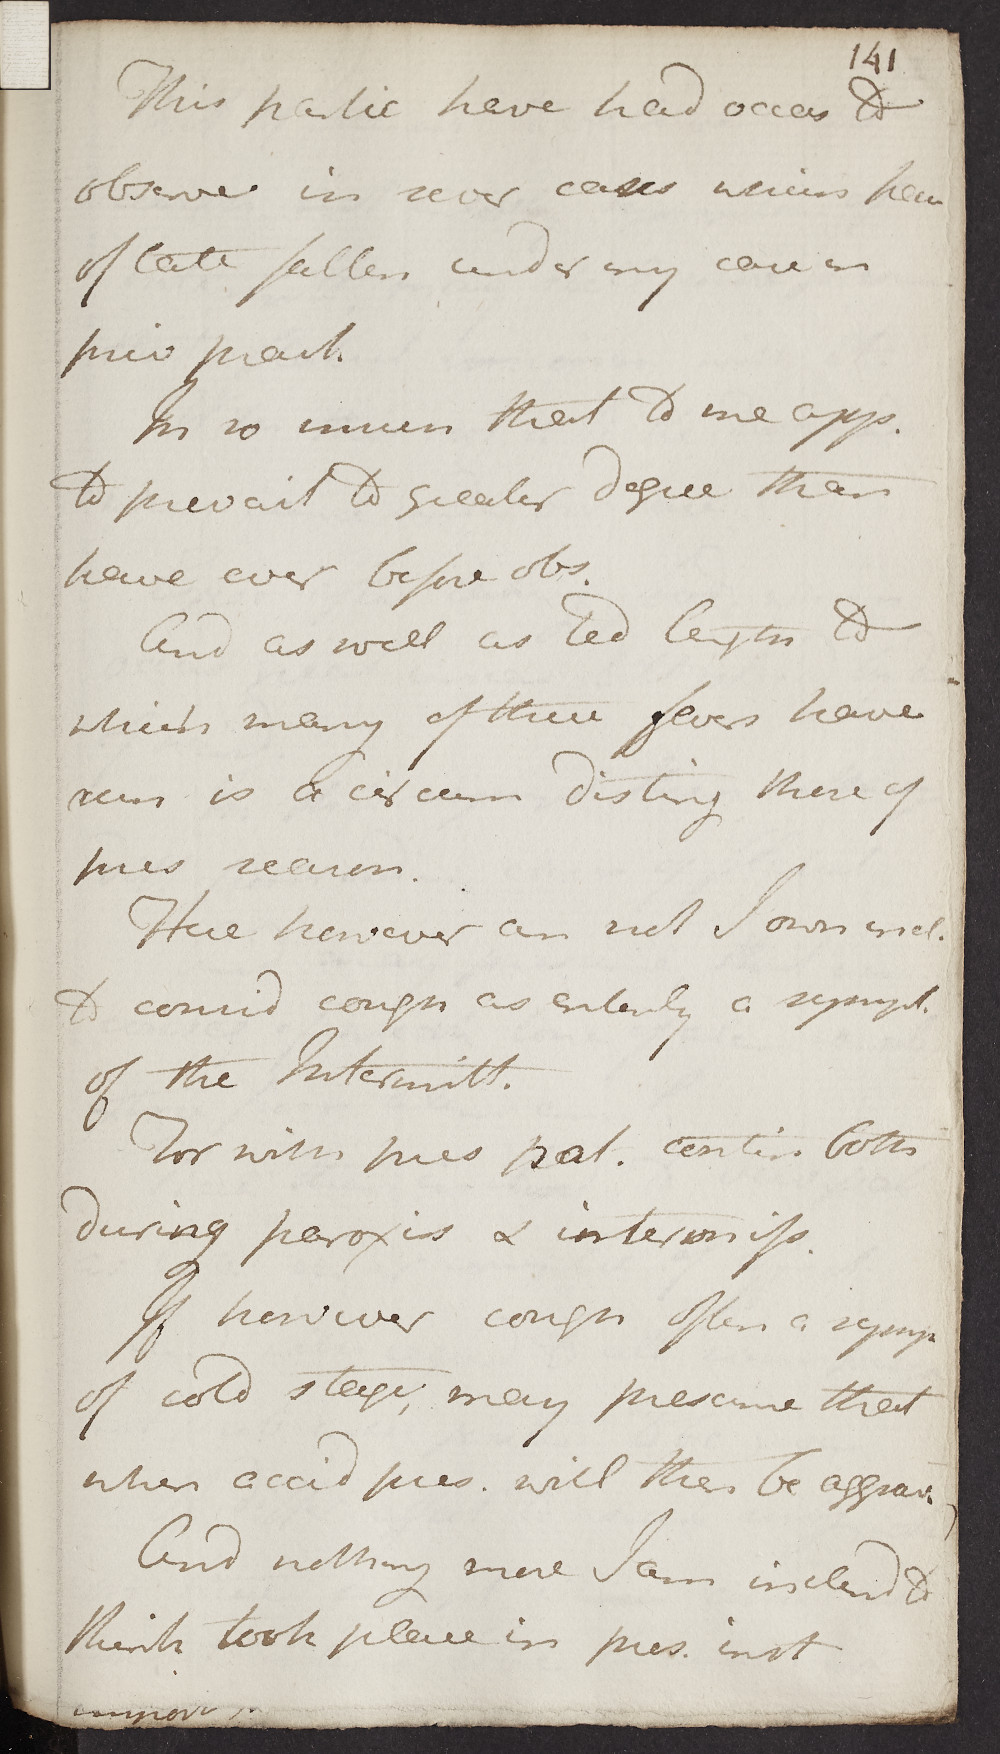 141
This partic have had occas to
observe in sever cases which have
of late fallen under my care in
priv pract.
In so much that to me app.
to prevail to greater degree than
have ever before obs.
And as well as Ted length to
which many of these fevers have
run is a circum disting those of
pres season.
Here however am not I own incl.
to consid cough as entenly a sympt.
of the Intermitt.
For with pres pat. contin both
during paroxis & intermiss.
If however cough often a symp
of cold stage, may presume that
when accid pres. will then be aggrav.
And nothing more I am inclend to
think took place in pres. inst